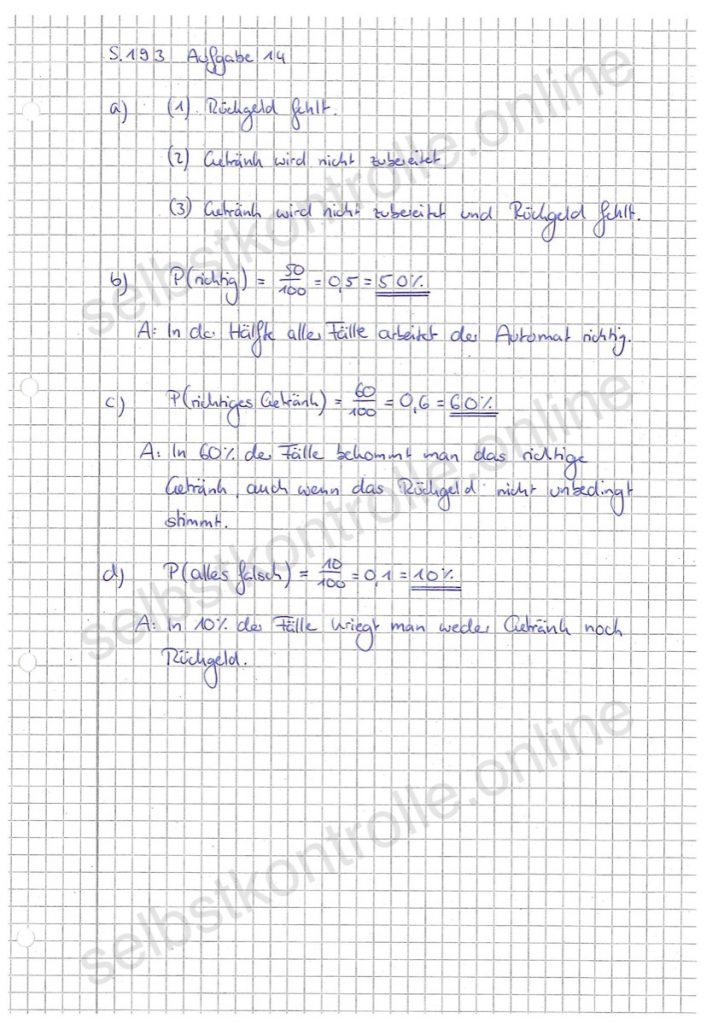 S.193 Aufgabe 14
a) (1) Rückgeld fehlt.
(2) Getränk wird nicht zubereitet
(3) Getränk wird nicht zubereitet und Rückgeld fehlt.
b) P(richtig) = 50/100 = 0,5 = 50%
A: In der Hälfte aller Fälle arbeitet der Automat richtig.
c) P(richtiges Getränk) = 60/100 = 0,6 = 60%
A: In 60% der Fälle bekommt man das richtige
Getränk, auch wenn das Rückgeld nicht unbedingt
stimmt.
d) P(alles falsch) = 10/100 = 0,1 = 10%
A: In 10% der Fälle kriegt man weder Getränk noch
Rückgeld.
selbstkontrolle.online
selbstkontrolle.online
selbstkontrolle.online